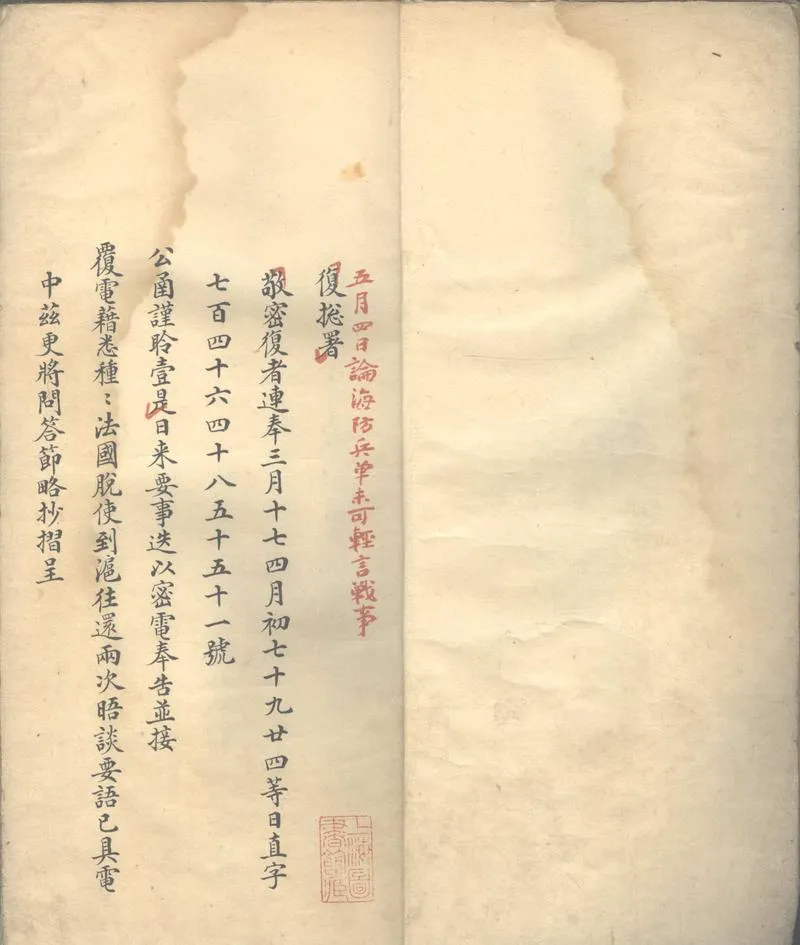 五月四日論海防兵單未可輕言戰事
復総署
敬密復者連奉三月十七四月初七十九廿四等日直字
七百四十六四十八五十五十一號
公函謹聆壹是日来要事迭以密電奉告並接
覆電藉悉種〻法國脫使到滬往還兩次晤談要語已具電
中茲更將問答節略抄摺呈
上海圖
書館藏